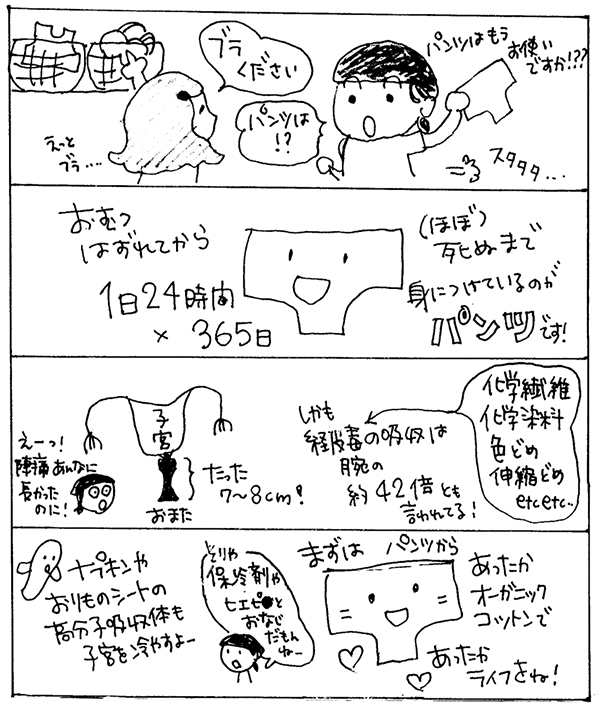 ブラ
ください
パンツはもう
お使い
ですか!??
パンツは
!?
えっと
ブラ....
スタタタ...
おむつ
はずれてから
1日24時間
× 365日
(ほぼ)
死ぬまで
身につけているのが
パンツです!
えーっ!
陣痛あんなに
長かった
のに!
子宮
たった
7〜8cm!
おまた
しかも
経皮毒の吸収は
腕の
約42倍とも
言われてる!
化学繊維
化学染料
色どめ
伸縮どめ
etcetc..
ナプキンや
おりものシートの
高分子吸収体も
子宮を冷やすよー
とりや
保冷剤や
ヒエピ●と
おなじ
だもん
ねー
まずは パンツから
あったか
オーガニック
コットンで
あったか
ライフさね!